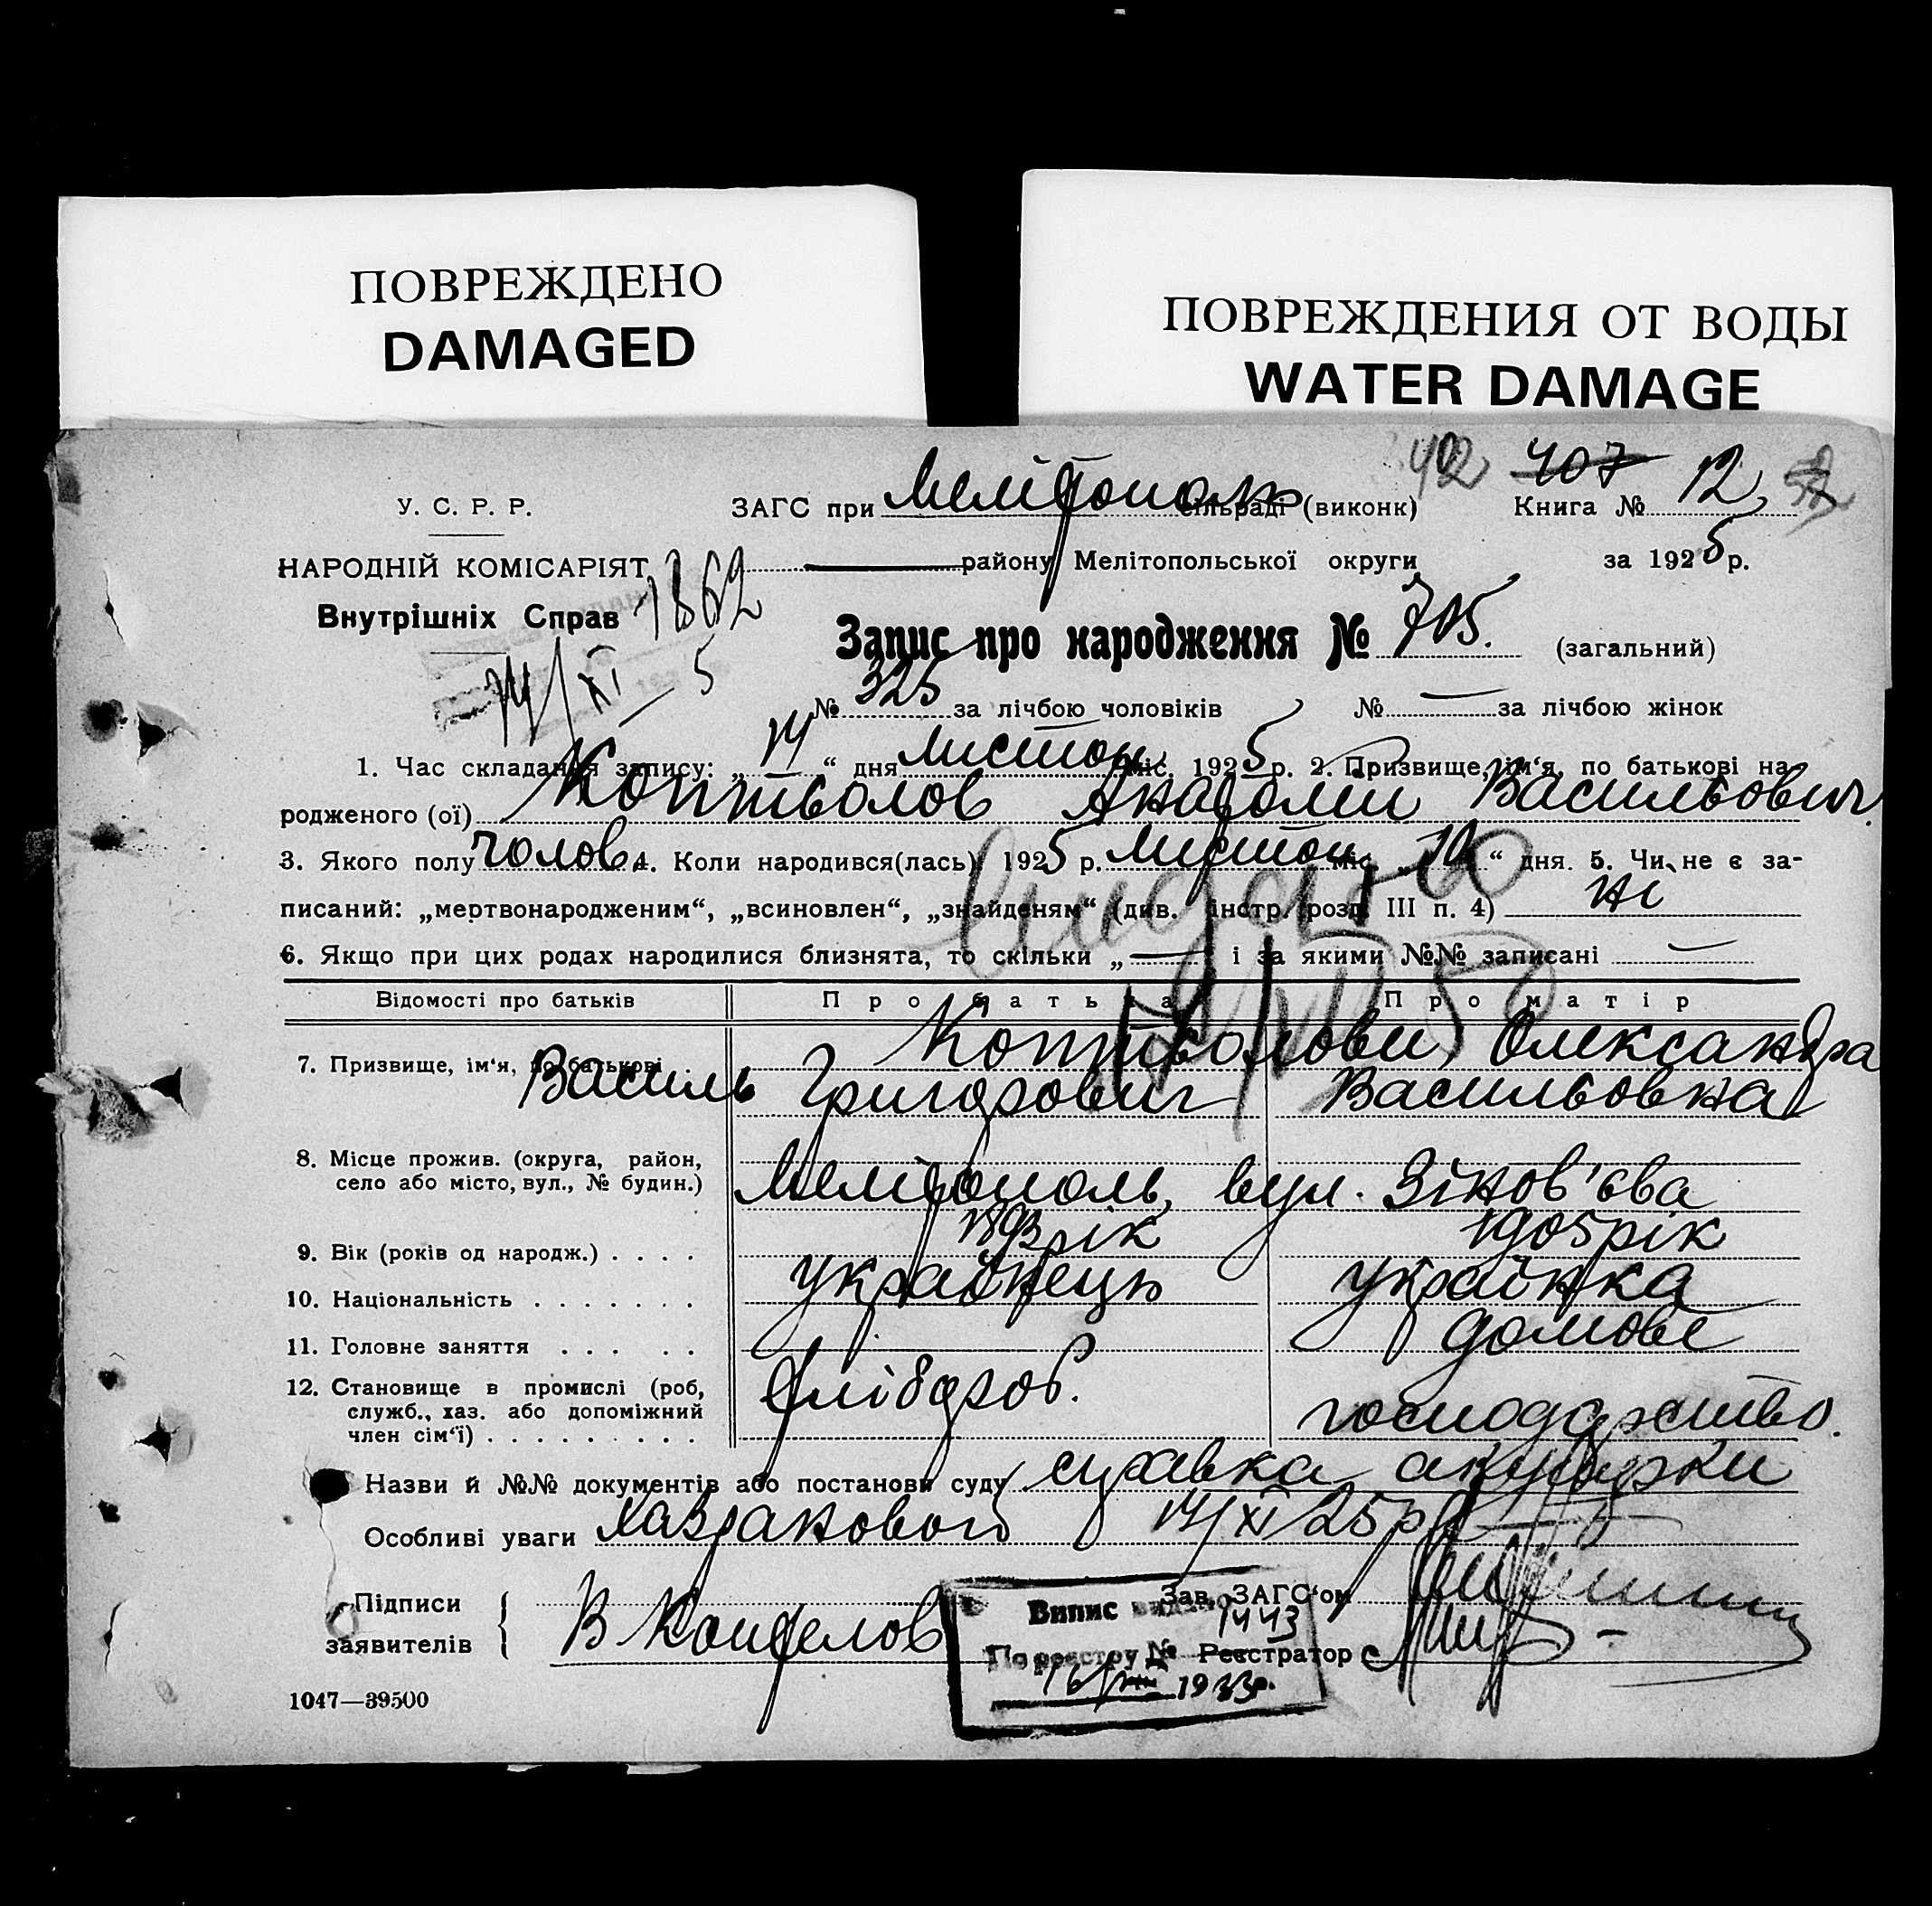 ПОВРЕЖДЕНО
DAMAGED
ПОВРЕЖДЕНИЯ ОТ ВОДЫ
WATER DAMAGE
402 407
У. С. Р. Р. ЗАГС при Меліtопольс сільраді (виконк) Книга № 12
НАРОДНІЙ КОМІСАРІЯТ району Мелітопольської округи за 1925 р.
Внутрішніх Справ 1862
Запис про народження № 705. (загальний)
14/XI 5
№ 325 за лічбою чоловіків № — за лічбою жінок
1. Час складання запису: „ 14 “ дня листоп. міс. 1925 р. 2. Призвище, ім‘я, по батькові на-
родженого (ої) Анатолій Васильович
3. Якого полу чолов. 4. Коли народився(лась) 1925 р. листоп міс. „ 10 “ дня. 5. Чи не є за-
писаний: „мертвонародженим“, „всиновлен“, „знайденям“ (див. інстр. розд. III п. 4) не
6. Якщо при цих родах народилися близнята, то скільки „ — “ і за якими №№ записані —
Відомості про батьків Про батька Про матір
7. Призвище, ім‘я, по батькові Олександра
Василь Григорович Васильовна
8. Місце прожив. (округа, район,
село або місто, вул., № будин.) Мелітополь, вул. Зінов'єва
9. Вік (років од народж.) . . . . 1893 рік 1905 рік
10. Національність . . . . . . . українець українка
11. Головне заняття . . . . . домове
12. Становище в промислі (роб, хлібороб.
служб., хаз. або допоміжний господарство.
член сім‘ї) . . . . . . . . .
Назви й №№ документів або постанови суду справка акушерки
Особливі уваги 14/XI 25 р
Підписи Зав. ЗАГС‘ом
заявителів В Реєстратор
Випис видано
1443
По реєстру №
1933р.
1047—39500